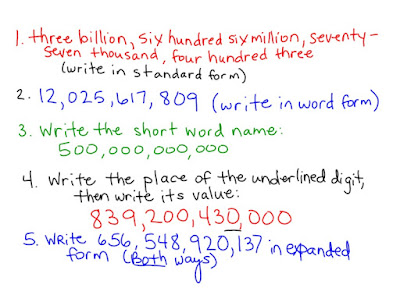 1. three billion, six hundred six million, seventy-
seven thousand, four hundred three
(write in standard form)
2. 12,025,617,809 (write in word form)
3. Write the short word name:
500,000,000,000
4. Write the place of the underlined digit,
then write its value:
839,200,430,000
5. Write 656,548,920,137 in expanded
form (Both ways)